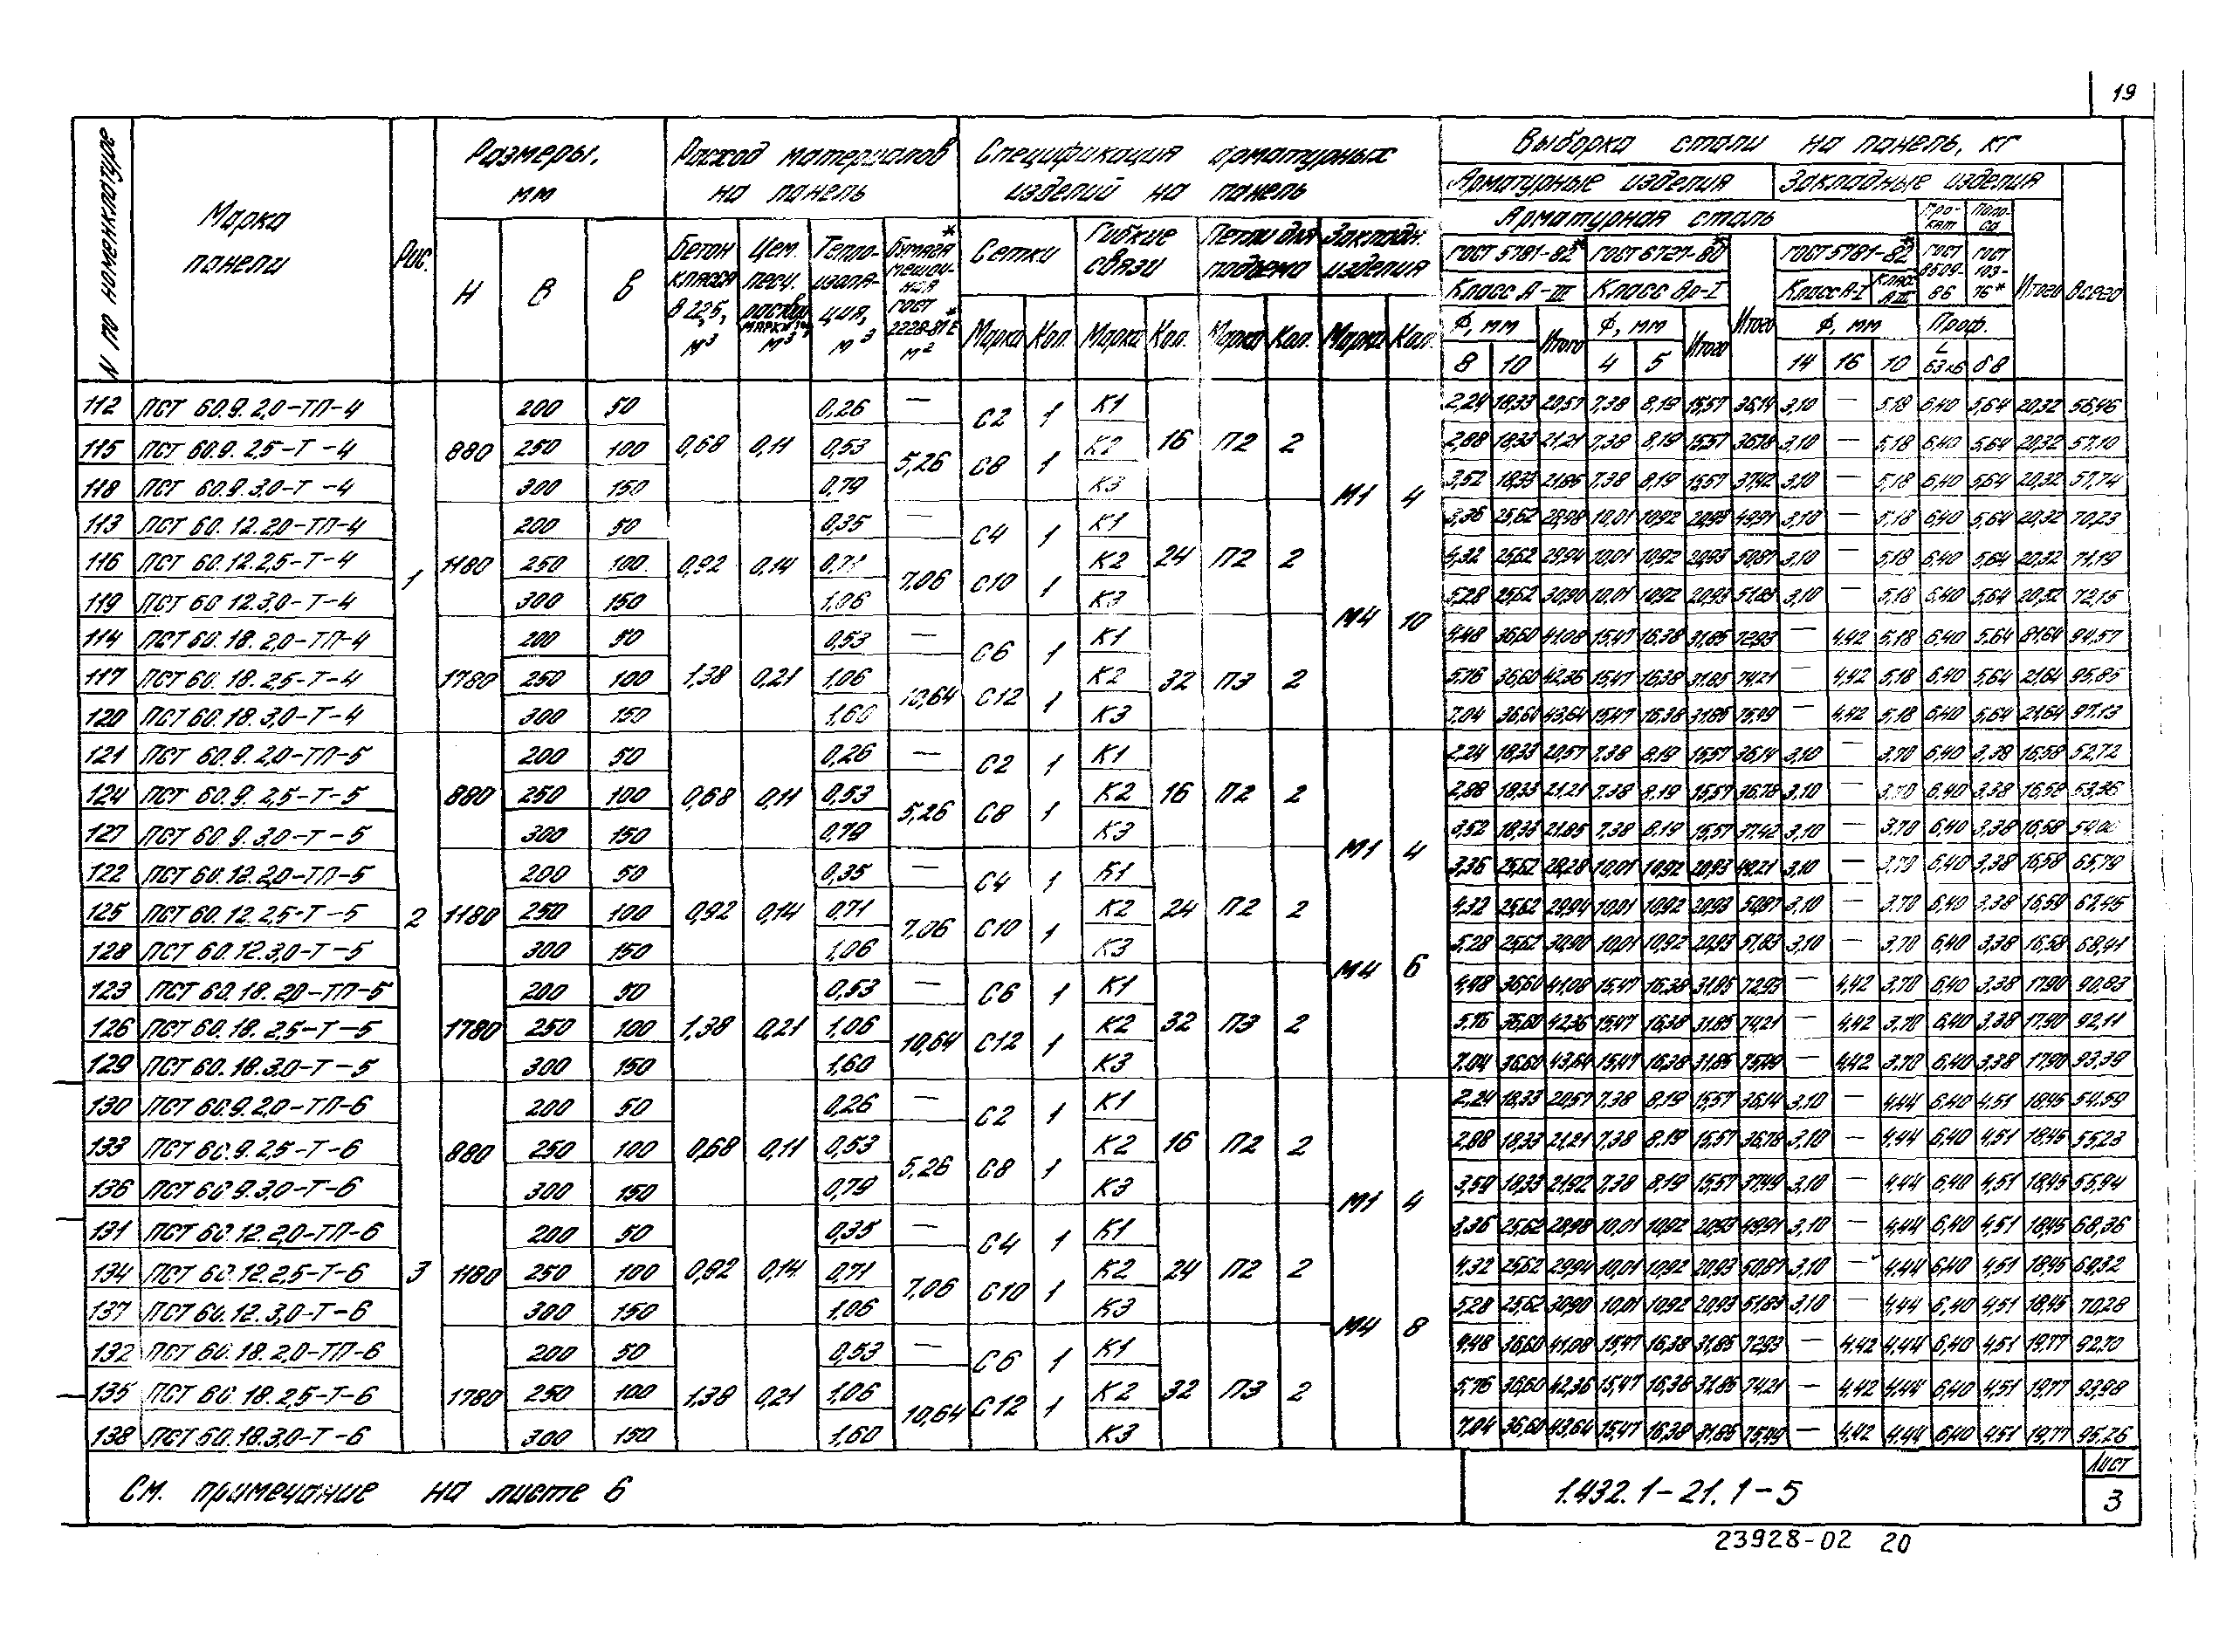 19
N по номенклатуре
Марка панели
Рис.
Размеры, мм
Расход материалов на панель
Спецификация арматурных изделий на панель
Выборка стали на панель, кг
Арматурные изделия Закладные изделия
Арматурная сталь Про-кат Поло-са
H B b
Бетон класса В 22,5, м³
Цем. песч. раствор марки м³
Тепло-изоля-ция, м³
Бумага* мешоч-ная ГОСТ 2228-81Е* м²
Сетки Гибкие связи Петли для подъема Закладн. изделия
Марка Кол. Марка Кол. Марка Кол. Марка Кол.
ГОСТ 5781-82* ГОСТ 6727-80* Итого ГОСТ 5781-82* ГОСТ 8509-86 ГОСТ 103-76* Итого Всего
Класс А-III Класс Вр-I Класс А-I Класс А-III
Ф, мм Итого Ф, мм Итого Ф, мм Проф.
8 10 4 5 14 16 10 L 63х6 δ8
112 ПСТ 60.9.2,0-ТП-4 200 50 0,26 — С2 1 К1 2,24 18,33 20,57 7,38 8,19 15,57 36,14 3,10 — 5,18 6,40 5,64 20,32 56,46
115 ПСТ 60.9.2,5-Т-4 880 250 100 0,68 0,11 0,53 5,26 С8 1 К2 16 П2 2 2,88 18,33 21,21 7,38 8,19 15,57 36,78 3,10 — 5,18 6,40 5,64 20,32 57,10
118 ПСТ 60.9.3,0-Т-4 300 150 0,79 К3 М1 4 3,52 18,33 21,85 7,38 8,19 15,57 37,42 3,10 — 5,18 6,40 5,64 20,32 57,74
113 ПСТ 60.12.2,0-ТП-4 200 50 0,35 — С4 1 К1 3,36 25,62 28,98 10,01 10,92 20,93 49,91 3,10 — 5,18 6,40 5,64 20,32 70,23
116 ПСТ 60.12.2,5-Т-4 1 1180 250 100 0,92 0,14 0,71 7,06 С10 1 К2 24 П2 2 4,32 25,62 29,94 10,01 10,92 20,93 50,87 3,10 — 5,18 6,40 5,64 20,32 71,19
119 ПСТ 60.12.3,0-Т-4 300 150 1,06 К3 М4 10 5,28 25,62 30,90 10,01 10,92 20,93 51,83 3,10 — 5,18 6,40 5,64 20,32 72,15
114 ПСТ 60.18.2,0-ТП-4 200 50 0,53 — С6 1 К1 4,48 36,60 41,08 15,47 16,38 31,85 72,93 — 4,42 5,18 6,40 5,64 21,64 94,57
117 ПСТ 60.18.2,5-Т-4 1780 250 100 1,38 0,21 1,06 10,64 С12 1 К2 32 П3 2 5,76 36,60 42,36 15,47 16,38 31,85 74,21 — 4,42 5,18 6,40 5,64 21,64 95,85
120 ПСТ 60.18.3,0-Т-4 300 150 1,60 К3 7,04 36,60 43,64 15,47 16,38 31,85 75,49 — 4,42 5,18 6,40 5,64 21,64 97,13
121 ПСТ 60.9.2,0-ТП-5 200 50 0,26 — С2 1 К1 2,24 18,33 20,57 7,38 8,19 15,57 36,14 3,10 — 3,70 6,40 3,38 16,58 52,72
124 ПСТ 60.9.2,5-Т-5 880 250 100 0,68 0,11 0,53 5,26 С8 1 К2 16 П2 2 2,88 18,33 21,21 7,38 8,19 15,57 36,78 3,10 — 3,70 6,40 3,38 16,58 53,36
127 ПСТ 60.9.3,0-Т-5 300 150 0,79 К3 М1 4 3,52 18,33 21,85 7,38 8,19 15,57 37,42 3,10 — 3,70 6,40 3,38 16,58 54,00
122 ПСТ 60.12.2,0-ТП-5 200 50 0,35 — С4 1 К1 3,36 25,62 28,28 10,01 10,92 20,93 49,21 3,10 — 3,70 6,40 3,38 16,58 65,79
125 ПСТ 60.12.2,5-Т-5 2 1180 250 100 0,92 0,14 0,71 7,06 С10 1 К2 24 П2 2 4,32 25,62 29,94 10,01 10,92 20,93 50,87 3,10 — 3,70 6,40 3,38 16,58 67,45
128 ПСТ 60.12.3,0-Т-5 300 150 1,06 К3 М4 6 5,28 25,62 30,90 10,01 10,92 20,93 51,83 3,10 — 3,70 6,40 3,38 16,58 68,41
123 ПСТ 60.18.2,0-ТП-5 200 50 0,53 — С6 1 К1 4,48 36,60 41,08 15,47 16,38 31,85 72,93 — 4,42 3,70 6,40 3,38 17,90 90,83
126 ПСТ 60.18.2,5-Т-5 1780 250 100 1,38 0,21 1,06 10,64 С12 1 К2 32 П3 2 5,76 36,60 42,36 15,47 16,38 31,85 74,21 — 4,42 3,70 6,40 3,38 17,90 92,11
129 ПСТ 60.18.3,0-Т-5 300 150 1,60 К3 7,04 36,60 43,64 15,47 16,38 31,85 75,49 — 4,42 3,70 6,40 3,38 17,90 93,39
130 ПСТ 60.9.2,0-ТП-6 200 50 0,26 — С2 1 К1 2,24 18,33 20,57 7,38 8,19 15,57 36,14 3,10 — 4,44 6,40 4,51 18,45 54,59
133 ПСТ 60.9.2,5-Т-6 880 250 100 0,68 0,11 0,53 5,26 С8 1 К2 16 П2 2 2,88 18,33 21,21 7,38 8,19 15,57 36,78 3,10 — 4,44 6,40 4,51 18,45 55,23
136 ПСТ 60.9.3,0-Т-6 300 150 0,79 К3 М1 4 3,59 18,33 21,92 7,38 8,19 15,57 37,49 3,10 — 4,44 6,40 4,51 18,45 55,94
131 ПСТ 60.12.2,0-ТП-6 200 50 0,35 — С4 1 К1 3,36 25,62 28,98 10,01 10,92 20,93 49,91 3,10 — 4,44 6,40 4,51 18,45 68,36
134 ПСТ 60.12.2,5-Т-6 3 1180 250 100 0,92 0,14 0,71 7,06 С10 1 К2 24 П2 2 4,32 25,62 29,94 10,01 10,92 20,93 50,87 3,10 — 4,44 6,40 4,51 18,45 69,32
137 ПСТ 60.12.3,0-Т-6 300 150 1,06 К3 М4 8 5,28 25,62 30,90 10,01 10,92 20,93 51,83 3,10 — 4,44 6,40 4,51 18,45 70,28
132 ПСТ 60.18.2,0-ТП-6 200 50 0,53 — С6 1 К1 4,48 36,60 41,08 15,47 16,38 31,85 72,93 — 4,42 4,44 6,40 4,51 19,77 92,70
135 ПСТ 60.18.2,5-Т-6 1780 250 100 1,38 0,21 1,06 10,64 С12 1 К2 32 П3 2 5,76 36,60 42,36 15,47 16,38 31,85 74,21 — 4,42 4,44 6,40 4,51 19,77 93,98
138 ПСТ 60.18.3,0-Т-6 300 150 1,60 К3 7,04 36,60 43,64 15,47 16,38 31,85 75,49 — 4,42 4,44 6,40 4,51 19,77 95,26
См. примечание на листе 6
1.432.1-21.1-5
Лист
3
23928-02 20